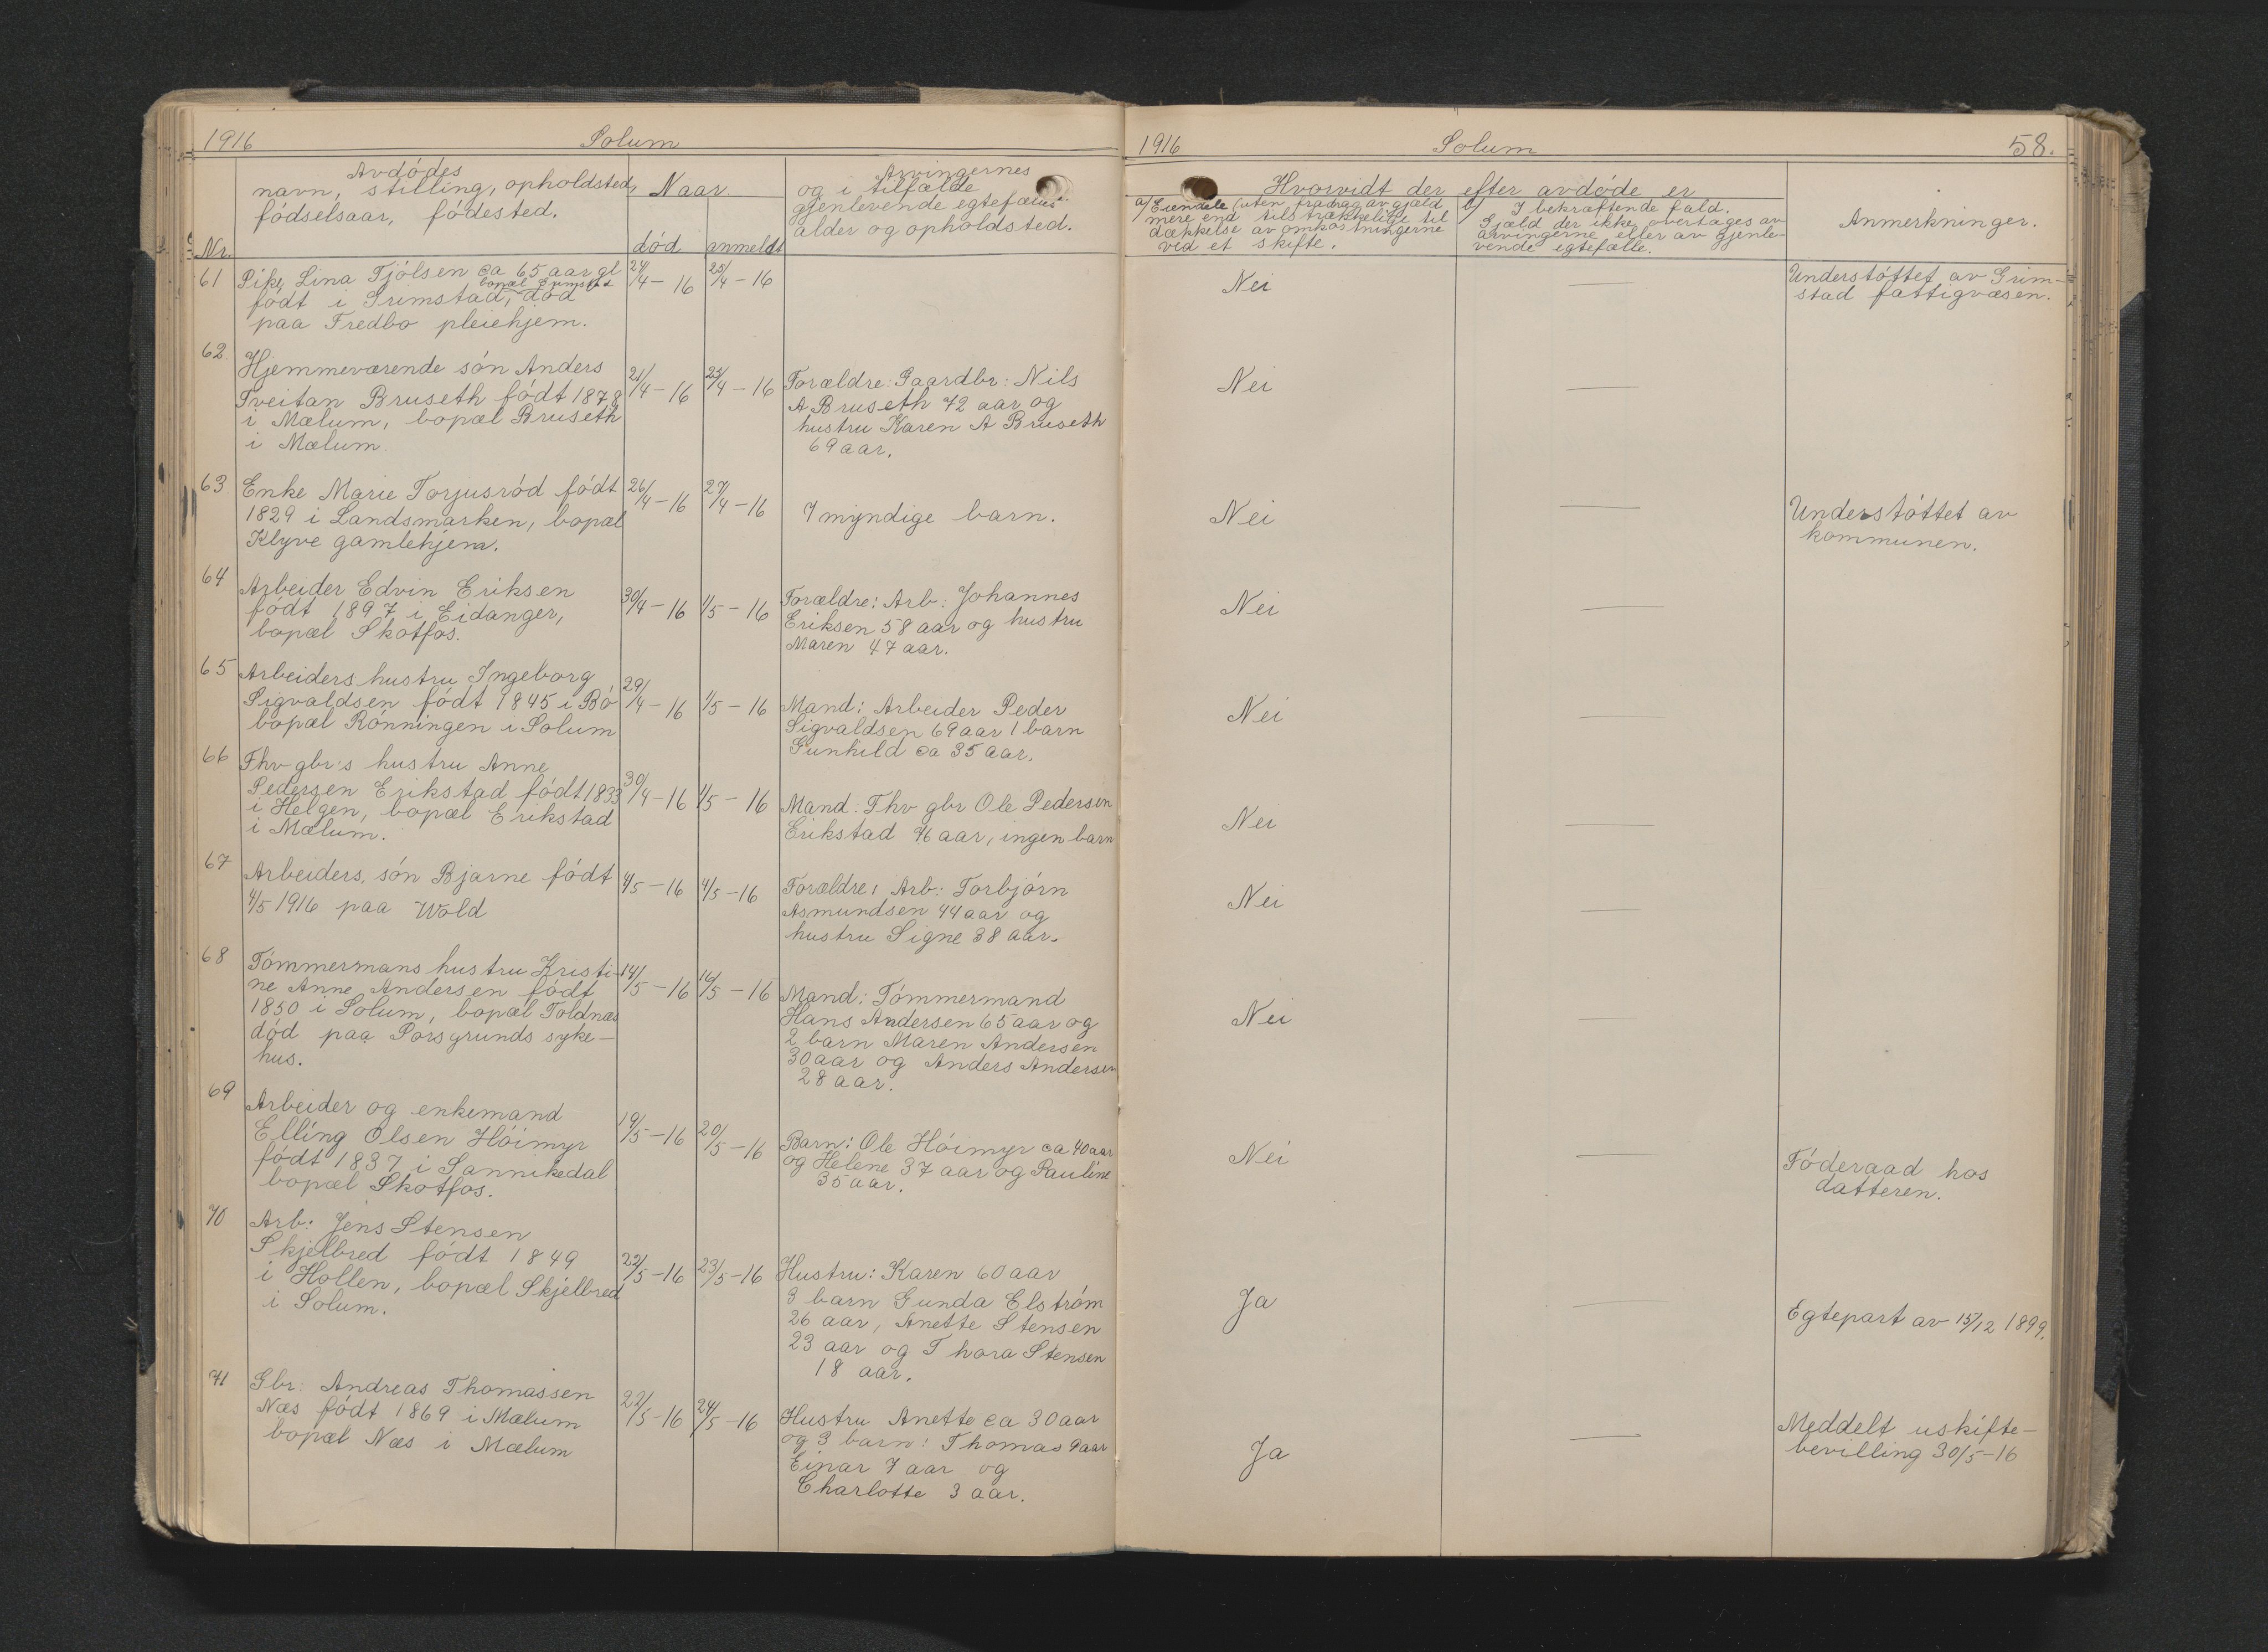 1916 Solum
Nr.
Avdødes
navn, stilling, opholdsted,
fødselsaar, fødested.
Naar.
død anmeldt
Arvingernes
og i tilfælde
gjenlevende egtefælles
alder og opholdsted.
61
Pike Lina Tjølsen ca 65 aar gl
bopæl Grimstad
født i Grimstad, død
paa Fredbo pleiehjem.
24/4-16
25/4-16
62.
Hjemmeværende søn Anders
Tveitan Bruseth født 1878
i Mælum, bopæl Bruseth
i Mælum
21/4-16
25/4-16
Forældre: Gaardbr: Nils
A Bruseth 72 aar og
hustru Karen A Bruseth
69 aar.
63
Enke Marie Torjusrød født
1829 i Landsmarken, bopæl
Klyve gamlehjem.
26/4-16
27/4-16
7 myndige barn.
64
Arbeider Edvin Eriksen
født 1897 i Eidanger,
bopæl Skotfos.
30/4-16
1/5-16
Forældre: Arb: Johannes
Eriksen 58 aar og hustru
Maren 47 aar.
65
Arbeiders hustru Ingeborg
Sigvaldsen født 1845 i Bø
bopæl Rønningen i Solum
29/4-16
1/5-16
Mand: Arbeider Peder
Sigvaldsen 69 aar 1 barn
Gunhild ca 35 aar.
66
Fhv gbr's hustru Anne
Pedersen Erikstad født 1833
i Helgen, bopæl Erikstad
i Mælum.
30/4-16
1/5-16
Mand: Fhv gbr Ole Pedersen
Erikstad 76 aar, ingen barn
67
Arbeiders søn Bjarne født
4/5 1916 paa Wold
4/5-16
4/5-16
Forældre: Arb: Torbjørn
Asmundsen 44 aar og
hustru Signe 38 aar.
68
Tømmermans hustru Kristi-
ne Anne Andersen født
1850 i Solum, bopæl Toldnæs
død paa Porsgrunds syke-
hus.
14/5-16
16/5-16
Mand: Tømmermand
Hans Andersen 65 aar og
2 barn Maren Andersen
30 aar og Anders Andersen
28 aar.
69
Arbeider og enkemand
Elling Olsen Høimyr
født 1837 i Sannikedal
bopæl Skotfos.
19/5-16
20/5-16
Barn: Ole Høimyr ca 40 aar
og Helene 37 aar og Pauline
35 aar.
70
Arb: Jens Stensen
Skjelbred født 1849
i Hollen, bopæl Skjelbred
i Solum.
22/5-16
23/5-16
Hustru: Karen 60 aar
3 barn Gunda Elstrøm
26 aar, Anette Stensen
23 aar og Thora Stensen
18 aar.
71
Gbr: Andreas Thomassen
Næs født 1869 i Mælum
bopæl Næs i Mælum
22/5-16
24/5-16
Hustru Anette ca 30 aar
og 3 barn: Thomas 9 aar
Einar 7 aar og
Charlotte 3 aar.
1916 Solum 58.
Hvorvidt der efter avdøde er
a) Eiendele (uten fradrag av gjæld
mere end tilstrækkelige til
dækkelse av omkostningerne
ved et skifte.
b) I bekræftende fald.
Gjæld der ikke overtages av
arvingerne eller av gjenle-
vende egtefælle.
Anmerkninger.
Nei —
Understøttet av Grim-
stad fattigvæsen.
Nei —
Nei —
Understøttet av
kommunen.
Nei —
Nei —
Nei —
Nei —
Nei —
Nei —
Føderaad hos
datteren.
Ja —
Egtepart av 15/12 1899.
Ja —
Meddelt uskifte-
bevilling 30/5-16